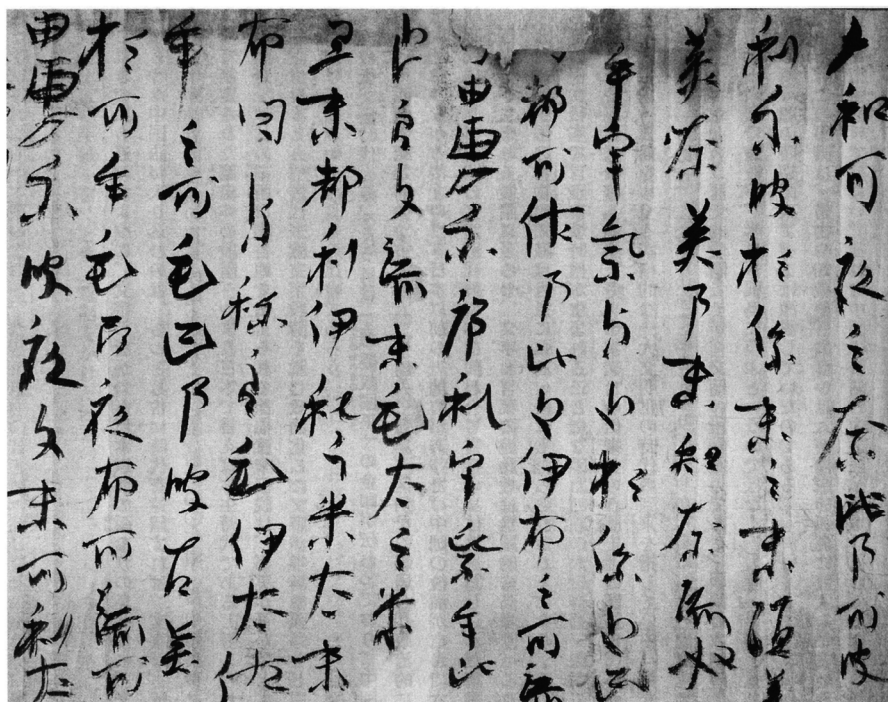 和可夜之奈比乃可波
利尓波於保末之末須美
美奈美乃末知奈流奴
乎宇気与止於保止己
都可佐乃比止伊布之可流
由恵尓序礼宇気牟比
止良久流末毛太之米
弖末都利伊礼之米太末
布日与祢良毛伊太佐
牟之可毛己乃波古美
於可牟毛阿夜布可流可
由恵尓波夜久末可利太